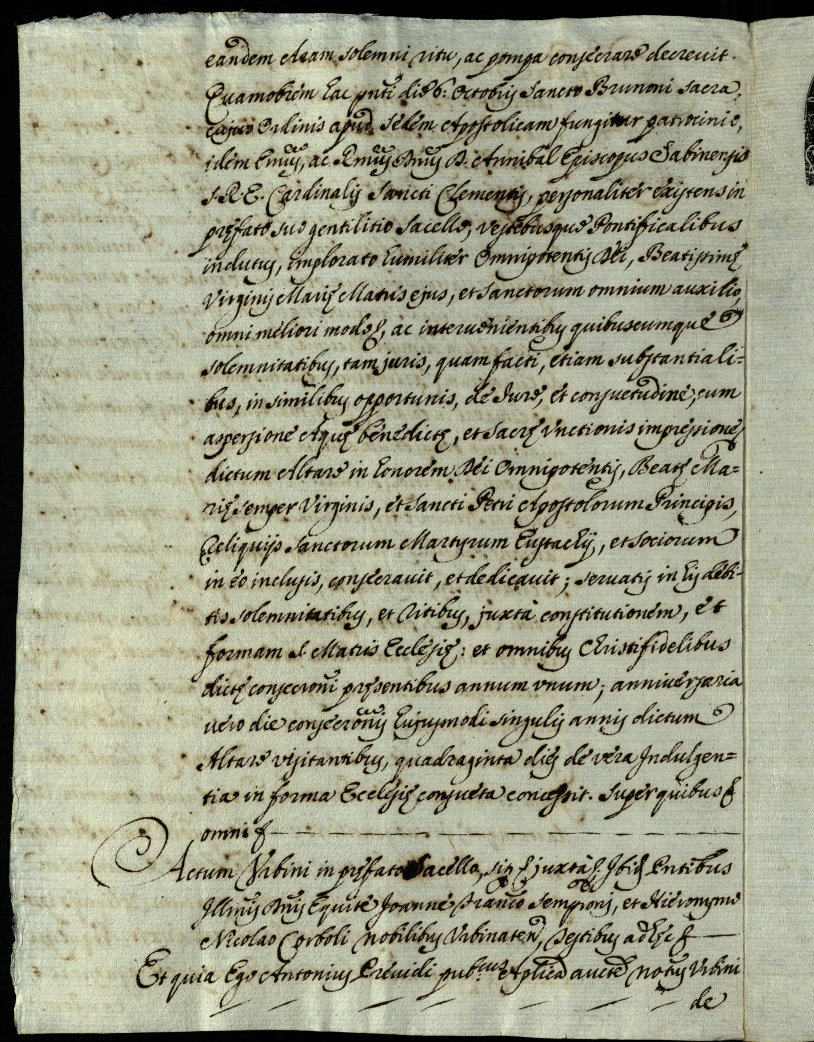 eandem Aram solemni ritu, ac pompa consecrare decrevit.
Quamobrem hac pnti die 6: Octobris Sancto Brunoni sacra,
cujus Ordinis apud Sedem Apostolicam fungitur patrocinio,
idem Emus, ac Rmus Dnus D. Annibal Episcopus Sabinensis
S.R.E. Cardinalis Sancti Clementis, personaliter existens in
præfato suo gentilitio Sacello, vestibusque Pontificalibus
indutus, implorato humiliter Omnipotentis Dei, Beatissimæ
Virginis Mariæ Matris ejus, et Sanctorum omnium auxilio,
omni meliori modo &, ac intervenientibus quibuscumque
solemnitatibus, tam juris, quam facti, etiam substantiali=
bus, in similibus opportunis, de Jure, et consuetudine, cum
aspersione Aquæ benedictæ, et Sacræ Unctionis impressione,
dictum Altare in honorem Dei Omnipotentis, Beatæ Ma=
riæ semper Virginis, et Sancti Petri Apostolorum Principis,
Reliquijs Sanctorum Martyrum Eustachij, et Sociorum
in eo inclusis, consecravit, et dedicavit; servatis in his debi-
tis solemnitatibus, et Ritibus, juxta constitutionem, et
formam S. Matris Ecclesiæ: et omnibus Christifidelibus
dictæ consecroni præsentibus annum unum; anniversaria
vero die consecronis hujusmodi singulis annis dictum
Altare visitantibus, quadraginta dies de vera Indulgen=
tia in forma Ecclesiæ consueta concessit. Super quibus &
omni &
Actum Urbini in præfato Sacello, sito & juxta &. Ibidem Pntibus
Illmis Dnis Equite Joanne Franco Semproni, et Hieronymo
Nicolao Corboli nobilibus Urbinaten, Testibus ad hæc &
Et quia Ego Antonius Prévidi pubcus Aplica aucte notus Urbini
de